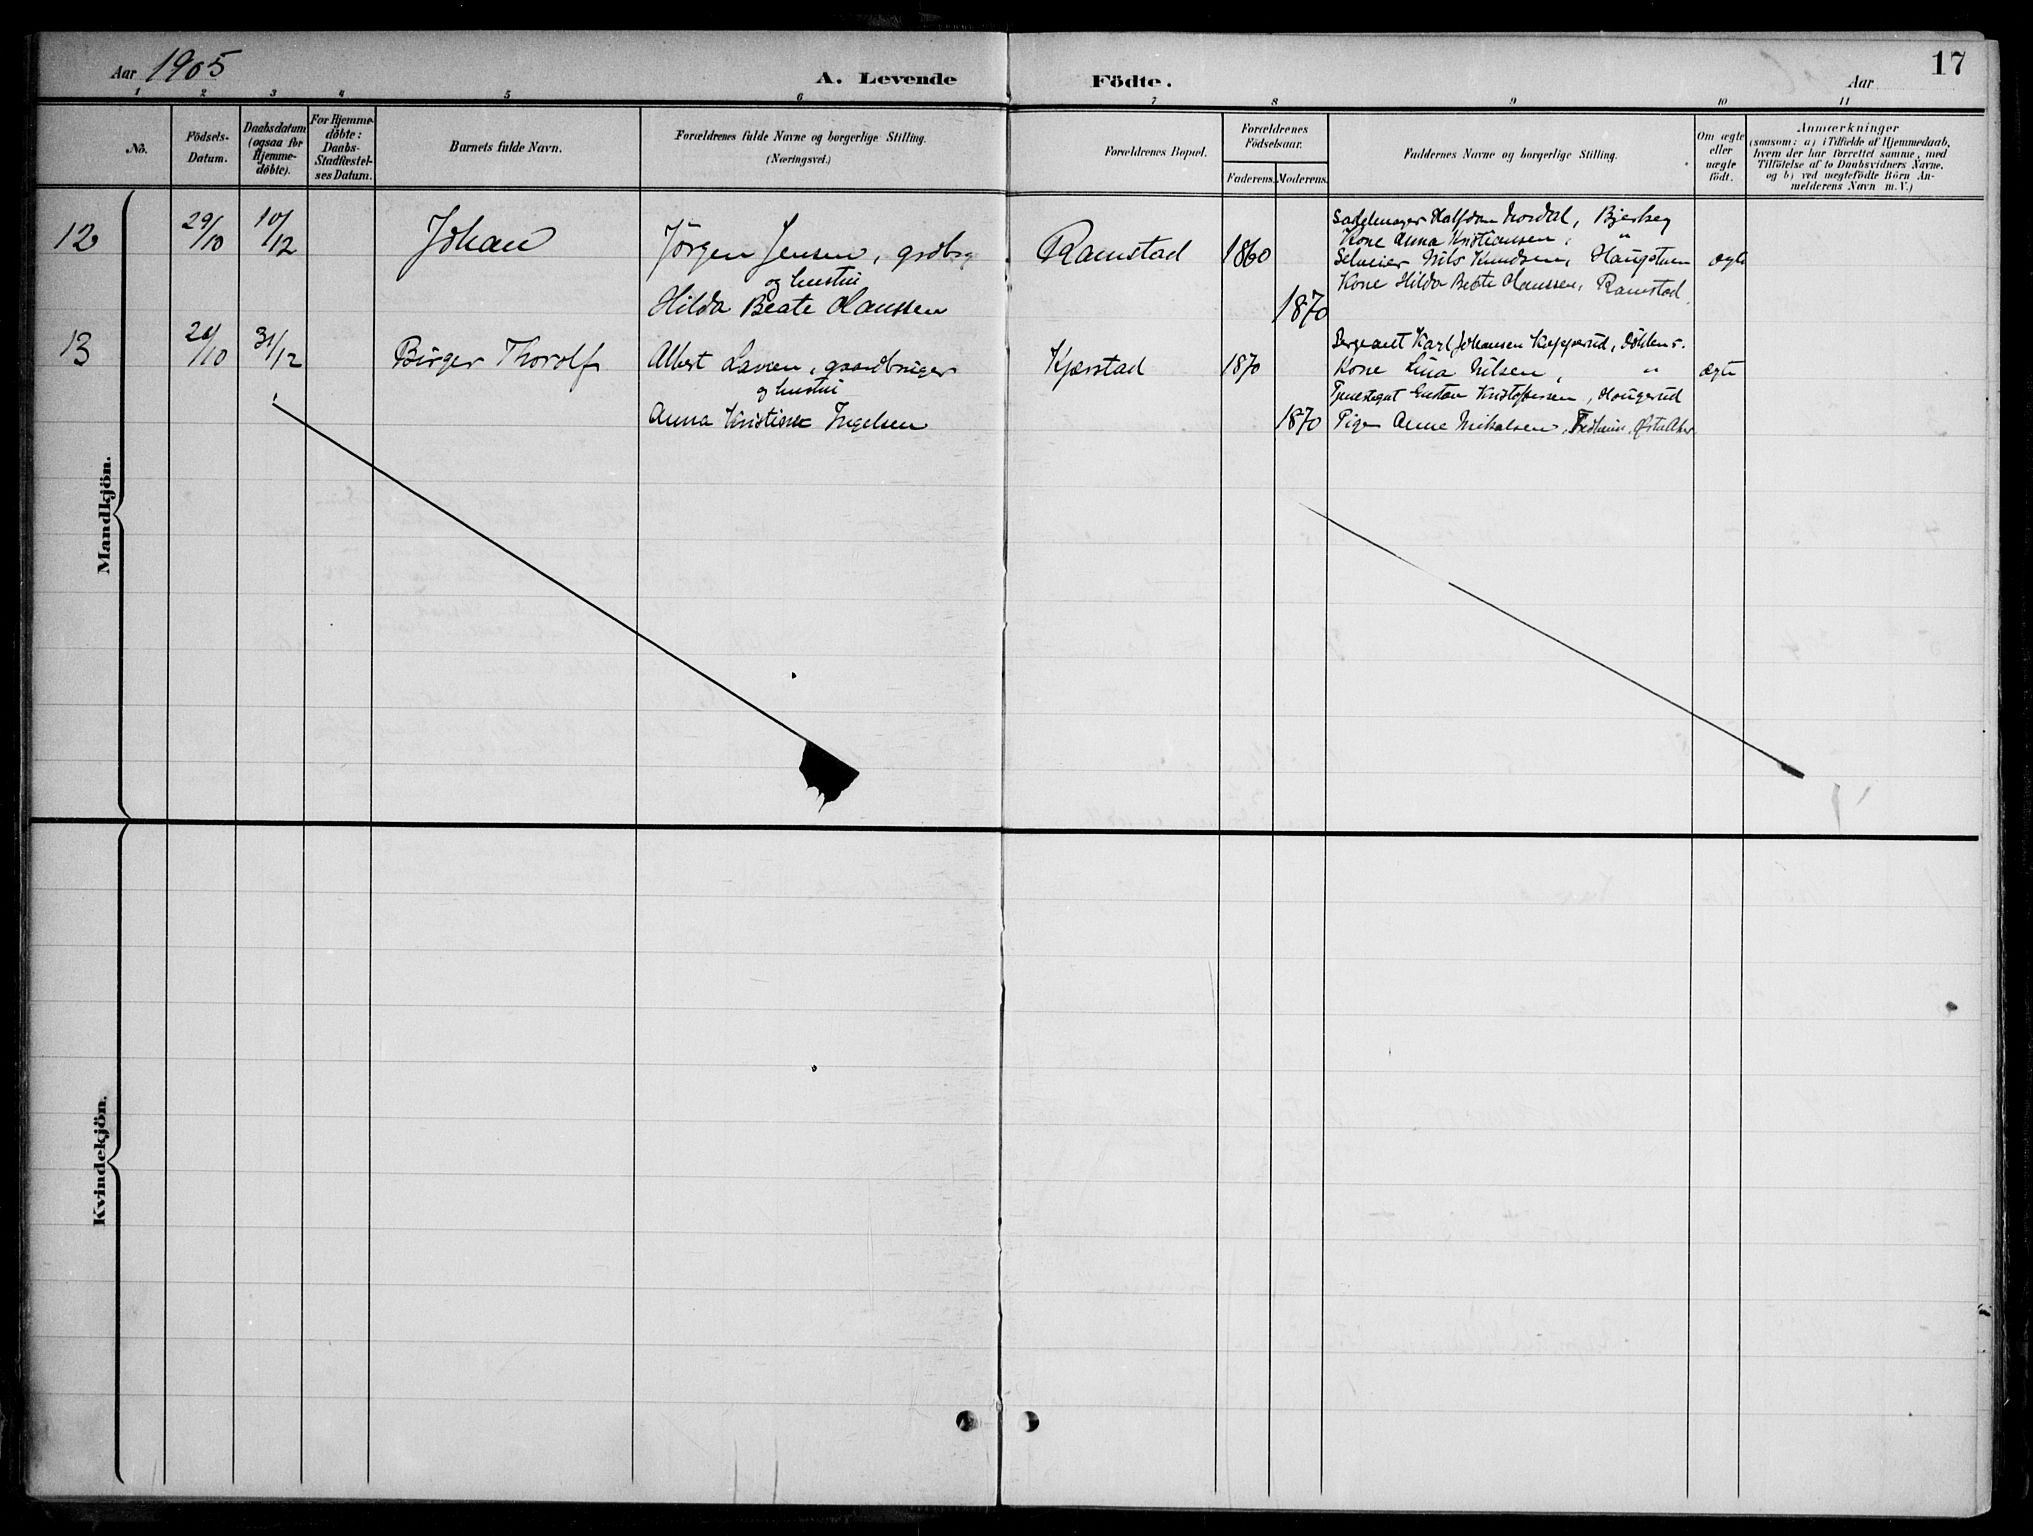 Aar 1905
A. Levende Födte.
Aar
17
1 2 3 4 5 6 7 8 9 10 11
No.
Födsels-Datum.
Daabsdatum (ogsaa for Hjemme-döbte).
For Hjemme-döbte: Daabs-Stadfæstel-ses Datum.
Barnets fulde Navn.
Forældrenes fulde Navne og borgerlige Stilling.
(Næringsvei.)
Forældrenes Bopæl.
Forældrenes Födselsaar.
Faderens. Moderens.
Faddernes Navne og borgerlige Stilling.
Om ægte eller uægte födt.
Anmærkninger
(saasom: a) i Tilfælde af Hjemmedaab,
hvem der har forrettet samme, med
Tilföielse af to Daabsvidners Navne.
og b) ved uægtefödte Börn An-
melderens Navn m. V.)
Mandkjön.
12 29/10 10/12 Johan
Jørgen Jensen, grdbr
og hustru
Hilda Beate Hanssen
Ramstad
1860
1870
Sadelmager Halfdan Nordal, Bjerkeg
Kone Anna Kristiansen, "
Nils Knudsen, Haugstuen
Kone Hilda Beate Hanssen, Ramstad.
ægte
13 /10 31/12 Birger Thorolf
Albert Larsen, gaardbruger
og hustru
Anna Kristiane Ingelsen
Kjærstad
1870
1870
Sergeant Karl Johansen
Kone Lina Nilsen, "
Gustav Kristoffersen, Haugerud
Pige Anne Mikalsen,
ægte
Kvindekjön.